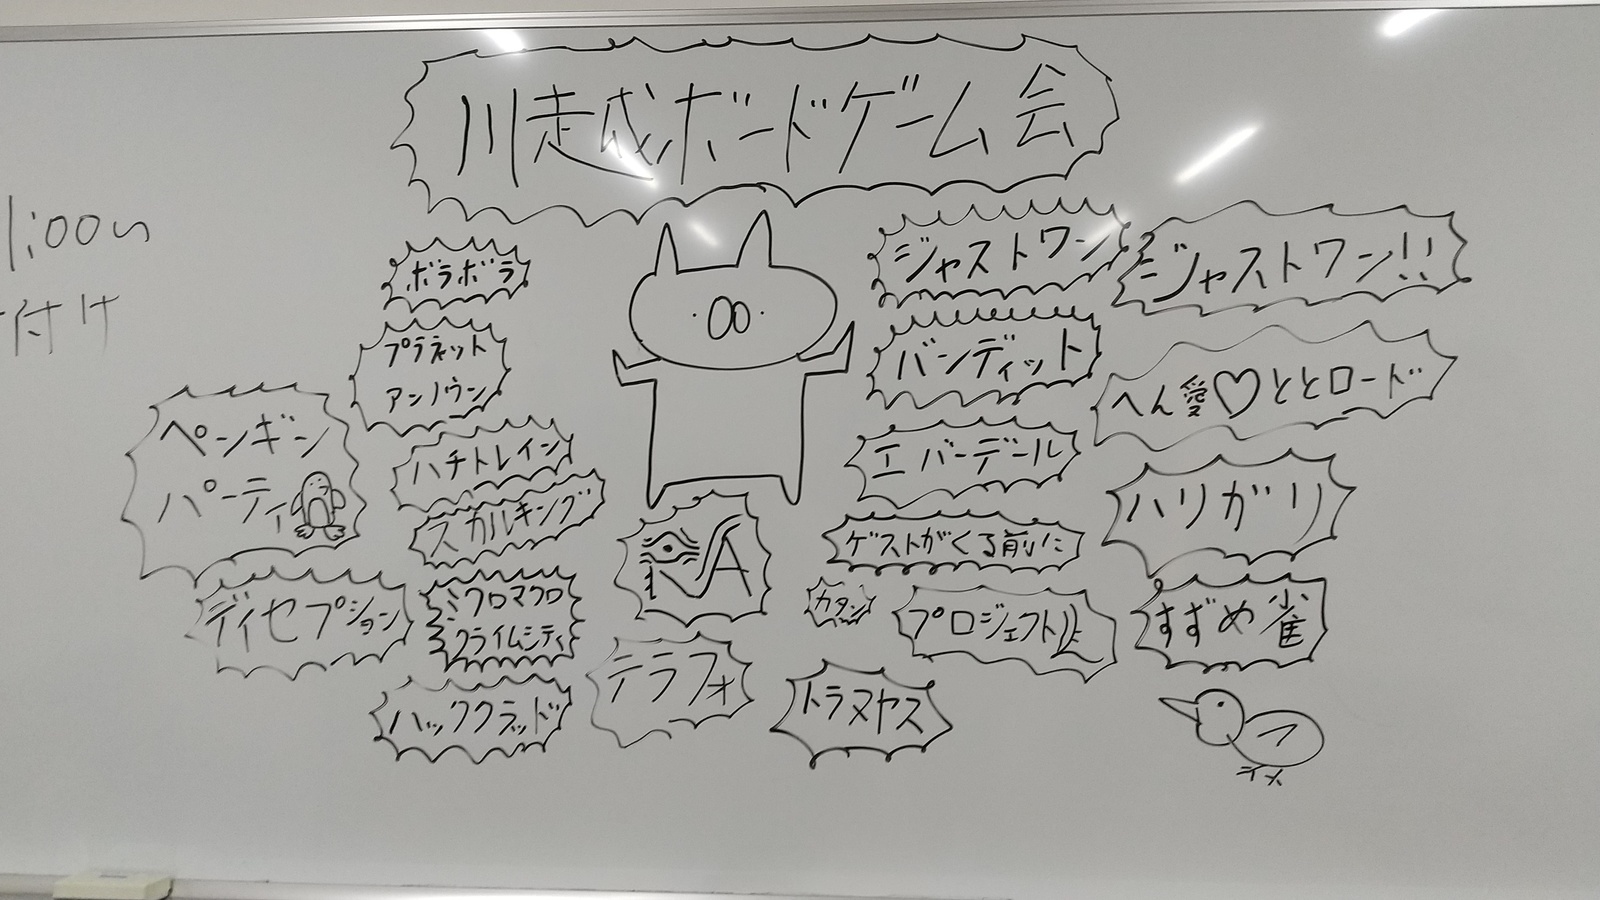 川越ボードゲーム会
1:00い
付け
ボラボラ
プラネット
アンノウン
ペンギン
パーティ
ハチトレイン
スカルキング
ディセプション
ミクロマクロ
クライムシティ
ハッククラッド
RA
テラフォ
ジャストワン
ジャストワン!!
バンディット
へん愛♡ととロード
エバーデール
ハリガリ
ゲストがくる前に
カタン
プロジェクトL
すずめ雀
トラヌヤス